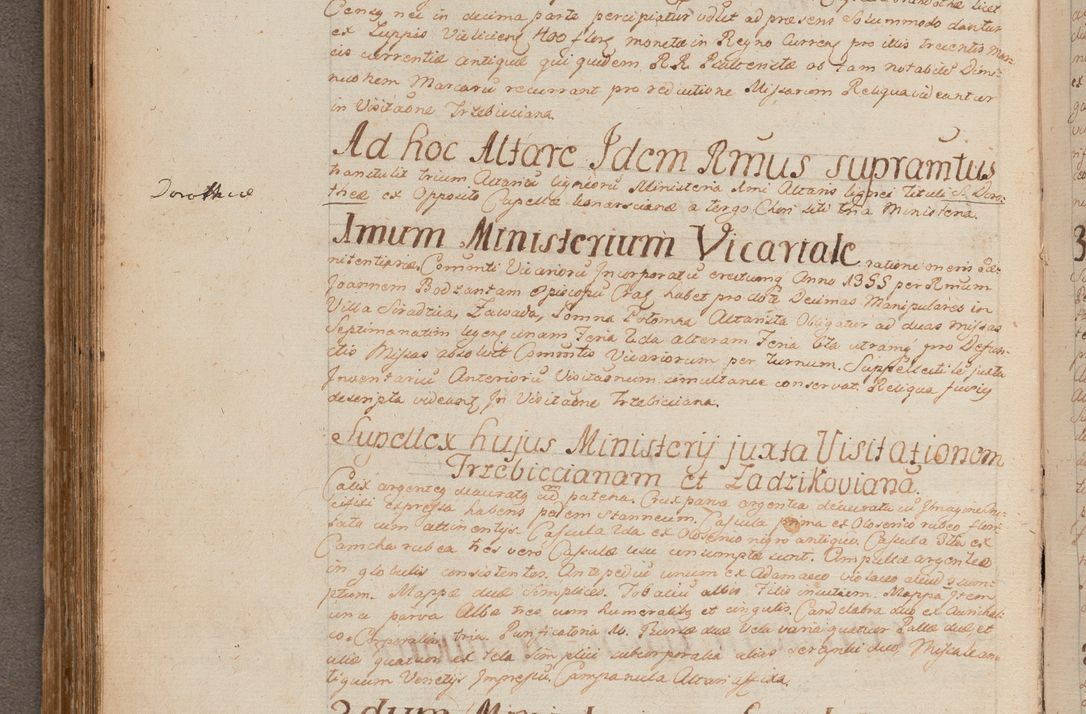 Censq nec in decima parte percipiatur vdlit ad præsens solummodo dantur
ex Zuppis Vieliciens 400 flors monetæ in Regno Currens pro illis trecentis Mar
cis currentiæ antiquæ qui quidem R.R. Pælbendæ ob tam notabile Dimi-
nuonem Marcarū recurrant pro reductione Missarum Reliqua videantur
in Visitaōne Trzebiciana.
Ad hoc Altare Idem Rmus supramtus
transtulit trium Altariū ligneorū Ministeria Imi Altaris lignei tituli S. Doro-
theæ ex Opposito Capellæ Konarscianæ a tergo Chori siti tria Ministeria.
Dorotheæ
Imum Ministerium Vicariale ratione oneris Pæ-
nitentiariæ. Comunti Vicariorū Incorporatū erectumq Anno 1355 per Rmum
Joannem Bodzantam Episcopū Crac habet pro dote Decimas Manipulares in
Villa Siradzia, Zawada, Łomna Potomka Altarista Obligatur ad duas missas
Septimanatim legens unam Feria 2da alteram Feria 6ta utramq pro Defun-
ctis Missas absolvit Comunitas Vicariorum per turnum. Suppellectile juxta
Inventariū Anteriorū Visitaōnum simultanee conservat. Reliqua fusius
descripta videant In Visitaōne Trzebiciana.
Supellex hujus Ministerij juxta Visitationem
Trzebiccianam et Zadzikovianā.
Calix argenteq deauratq cū patena. Crux parva argentea deaurata cū Imagine Cru-
cifixi expressa habens pedem stanneum. Casula prima ex Olosenio rubeo flori-
sata cum attinentijs. Casula 2da ex Olosenio nigro antiquo. Casula 3tia ex
Camcha rubea tres vero Casulæ usu consumptæ sunt. Ampullæ argenteæ
in globulis consistentes. Antepediū unum ex Adamasco violaceo aliud
ptum. Mappæ duæ simplices. Tobaliū albis filis
una parva Albæ tres cum humeralibq et cingulis. Candelabra duo ex Aurichal-
co. Corporalia tria. Purificatoria 10. Bursæ duæ Vela varia quatuor Pallæ duæ et
aliæ quatuor ex tela simplici subcorporalia alias serginki duo, Missale an-
tiquum Venetijs Impressū. Campanula Altari affixa.
2dum